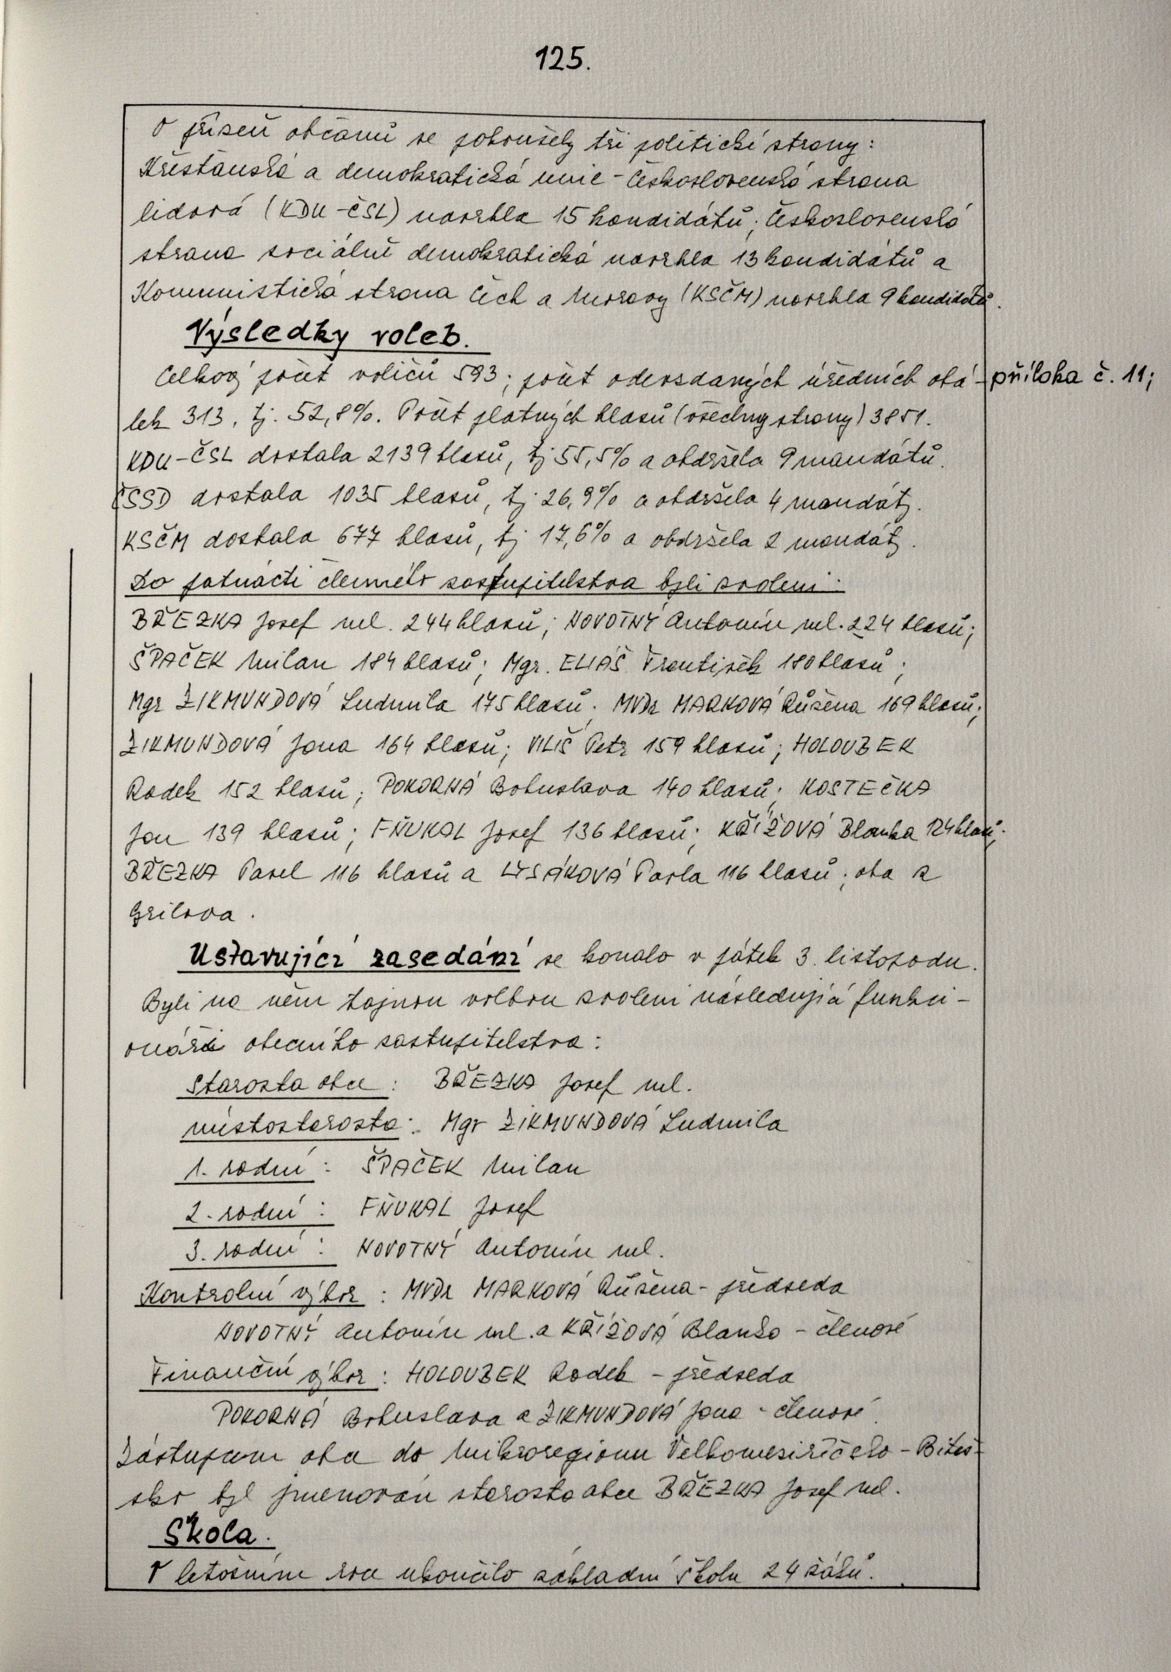 125.
O přízeň občanů se pokoušely tři politické strany:
Křesťanská a demokratická unie - Československá strana
lidová (KDU-ČSL) navrhla 15 kandidátů; Československá
strana sociálně demokratická navrhla 13 kandidátů a
Komunistická strana Čech a Moravy (KSČM) navrhla 9 kandidátů.
Výsledky voleb.
Celkový počet voličů 593; počet odevzdaných úředních obá- příloha č. 11;
lek 313, tj. 52,8%. Počet platných hlasů (všechny strany) 3851.
KDU-ČSL dostala 2139 hlasů, tj 55,5% a obdržela 9 mandátů.
ČSSD dostala 1035 hlasů, tj 26,9% a obdržela 4 mandáty.
KSČM dostala 677 hlasů, tj 17,6% a obdržela 2 mandáty.
Do patnácti členného zastupitelstva byli zvoleni:
BŘEZKA Josef ml. 244 hlasů; NOVOTNÝ Antonín ml. 224 hlasů;
ŠPAČEK Milan 184 hlasů; Mgr. ELIÁŠ František 180 hlasů;
Mgr ZIKMUNDOVÁ Ludmila 175 hlasů; MVDr MARKOVÁ Růžena 169 hlasů;
ZIKMUNDOVÁ Jana 164 hlasů; VILIŠ Petr 159 hlasů; HOLOUBEK
Radek 152 hlasů; POKORNÁ Bohuslava 140 hlasů; KOSTEČKA
Jan 139 hlasů; FŇUKAL Josef 136 hlasů; KŘÍŽOVÁ Blanka 124 hlasů;
BŘEZKA Pavel 116 hlasů a LYSÁKOVÁ Pavla 116 hlasů; oba z
Grilova.
Ustavující zasedání se konalo v pátek 3. listopadu.
Byli na něm tajnou volbou zvoleni následující funkci-
onáři obecního zastupitelstva:
Starosta obce: BŘEZKA Josef ml.
místostarosta: Mgr ZIKMUNDOVÁ Ludmila
1. radní: ŠPAČEK Milan
2. radní: FŇUKAL Josef
3. radní: NOVOTNÝ Antonín ml.
Kontrolní výbor: MVDr MARKOVÁ Růžena - předseda
NOVOTNÝ Antonín ml. a KŘÍŽOVÁ Blanka - členové
Finanční výbor: HOLOUBEK Radek - předseda
POKORNÁ Bohuslava a ZIKMUNDOVÁ Jana - členové.
Zástupcem obce do Mikroregionu Velkomeziříčsko - Bíteš-
sko byl jmenován starosta obce BŘEZKA Josef ml.
Škola.
V letošním roce ukončilo základní školu 24 žáků.